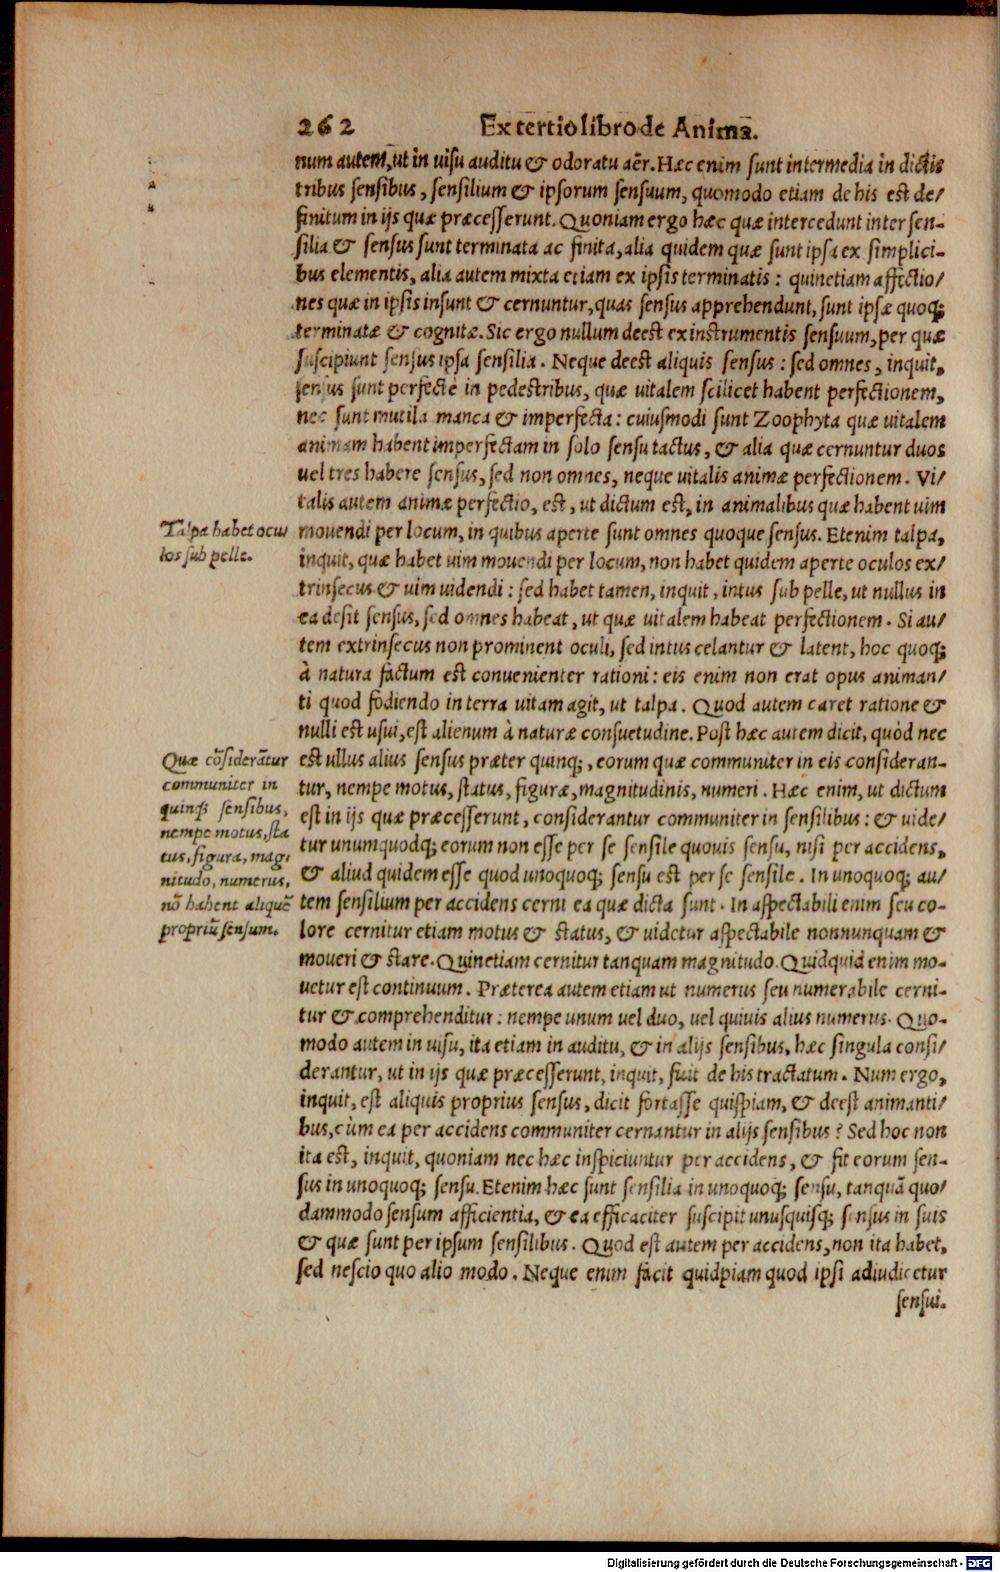 262 Ex tertio libro de Anima.
num autem, ut in uisu auditu & odoratu aër. Hæc enim sunt intermedia in dictis
tribus sensibus, sensilium & ipsorum sensuum, quomodo etiam de his est de/
finitum in ijs quæ præcesserunt. Quoniam ergo hæc quæ intercedunt inter sen-
silia & sensus sunt terminata ac finita, alia quidem quæ sunt ipsa ex simplici-
bus elementis, alia autem mixta etiam ex ipsis terminatis: quinetiam affectio/
nes quæ in ipsis insunt & cernuntur, quas sensus apprehendunt, sunt ipsæ quoq;
terminatæ & cognitæ. Sic ergo nullum deest ex instrumentis sensuum, per quæ
suscipiunt sensus ipsa sensilia. Neque deest aliquis sensus: sed omnes, inquit,
sensus sunt perfectè in pedestribus, quæ uitalem scilicet habent perfectionem,
nec sunt mutila manca & imperfecta: cuiusmodi sunt Zoophyta quæ uitalem
animam habent imperfectam in solo sensu tactus, & alia quæ cernuntur duos
uel tres habere sensus, sed non omnes, neque uitalis animæ perfectionem. Vi/
talis autem animæ perfectio, est, ut dictum est, in animalibus quæ habent uim
Talpa habet ocu/
los sub pelle.
mouendi per locum, in quibus aperte sunt omnes quoque sensus. Etenim talpa,
inquit, quæ habet uim mouendi per locum, non habet quidem aperte oculos ex/
trinsecus & uim uidendi: sed habet tamen, inquit, intus sub pelle, ut nullus in
ea desit sensus, sed omnes habeat, ut quæ uitalem habeat perfectionem. Si au/
tem extrinsecus non prominent oculi, sed intus celantur & latent, hoc quoq;
à natura factum est conuenienter rationi: eis enim non erat opus animan/
ti quod fodiendo in terra uitam agit, ut talpa. Quod autem caret ratione &
nulli est usui, est alienum à naturæ consuetudine. Post hæc autem dicit, quòd nec
Quæ cōsiderātur
communiter in
quinq; sensibus,
nempe motus, sta
tus, figura, mag/
nitudo, numerus,
nō habent aliquē
propriū sensum.
est ullus alius sensus præter quinq;, eorum quæ communiter in eis consideran-
tur, nempe motus, status, figuræ, magnitudinis, numeri. Hæc enim, ut dictum
est in ijs quæ præcesserunt, considerantur communiter in sensilibus: & uide/
tur unumquodq; eorum non esse per se sensile quouis sensu, nisi per accidens,
& aliud quidem esse quod unoquoq; sensu est per se sensile. In unoquoq; au/
tem sensilium per accidens cerni ea quæ dicta sunt. In aspectabili enim seu co-
lore cernitur etiam motus & status, & uidetur aspectabile nonnunquam &
moueri & stare. Quinetiam cernitur tanquam magnitudo. Quidquid enim mo-
uetur est continuum. Præterea autem etiam ut numerus seu numerabile cerni-
tur & comprehenditur: nempe unum uel duo, uel quiuis alius numerus. Quo-
modo autem in uisu, ita etiam in auditu, & in alijs sensibus, hæc singula consi/
derantur, ut in ijs quæ præcesserunt, inquit, fuit de his tractatum. Num ergo,
inquit, est aliquis proprius sensus, dicit fortasse quispiam, & deest animanti/
bus, cùm ea per accidens communiter cernantur in alijs sensibus? Sed hoc non
ita est, inquit, quoniam nec hæc inspiciuntur per accidens, & fit eorum sen-
sus in unoquoq; sensu. Etenim hæc sunt sensilia in unoquoq; sensu, tanquā quo/
dammodo sensum afficientia, & ea efficaciter suscipit unusquisq; sensus in suis
& quæ sunt per ipsum sensilibus. Quod est autem per accidens, non ita habet,
sed nescio quo alio modo. Neque enim facit quidpiam quod ipsi adiudicetur
sensui.
Digitalisierung gefördert durch die Deutsche Forschungsgemeinschaft - DFG